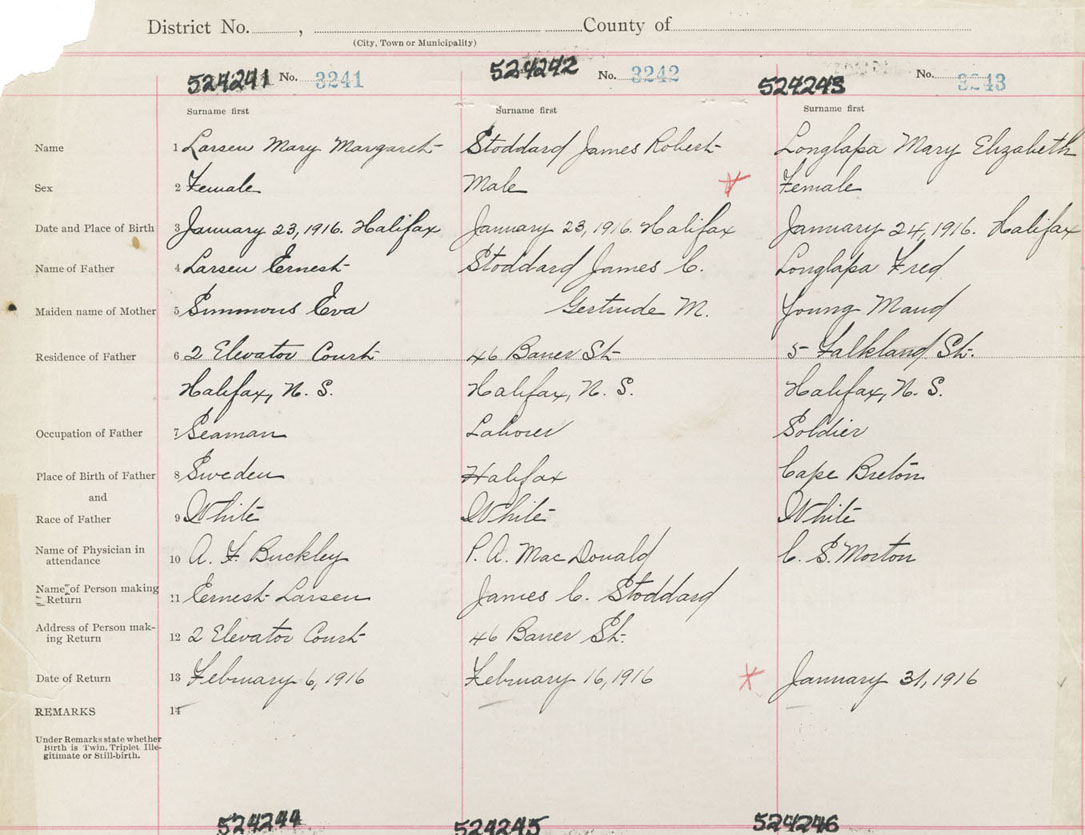 District No. , County of
(City, Town or Municipality)
524241 No. 3241 524242 No. 3242 524243 No. 3243
Surname first Surname first Surname first
Name 1 Larsen Mary Margaret Stoddard James Robert Longlapa Mary Elizabeth
Sex 2 Female Male Female
Date and Place of Birth 3 January 23, 1916. Halifax January 23, 1916. Halifax January 24, 1916. Halifax
Name of Father 4 Larsen Ernest Stoddard James C. Longlapa Fred
Maiden name of Mother 5 Simmons Eva Gertrude M. Young Maud
Residence of Father 6 2 Elevator Court 46 Bauer St. 5 Falkland St.
Halifax, N. S. Halifax, N. S. Halifax, N. S.
Occupation of Father 7 Seaman Laborer Soldier
Place of Birth of Father 8 Sweden Halifax Cape Breton
and
Race of Father 9 White White White
Name of Physician in
attendance 10 A. F. Buckley P. A. MacDonald C. S. Morton
Name of Person making
Return 11 Ernest Larsen James C. Stoddard
Address of Person mak-
ing Return 12 2 Elevator Court 46 Bauer St.
Date of Return 13 February 6, 1916 February 16, 1916 January 31, 1916
REMARKS 14
Under Remarks state whether
Birth is Twin, Triplet, Ille-
gitimate or Still-birth.
524244 524245 524246